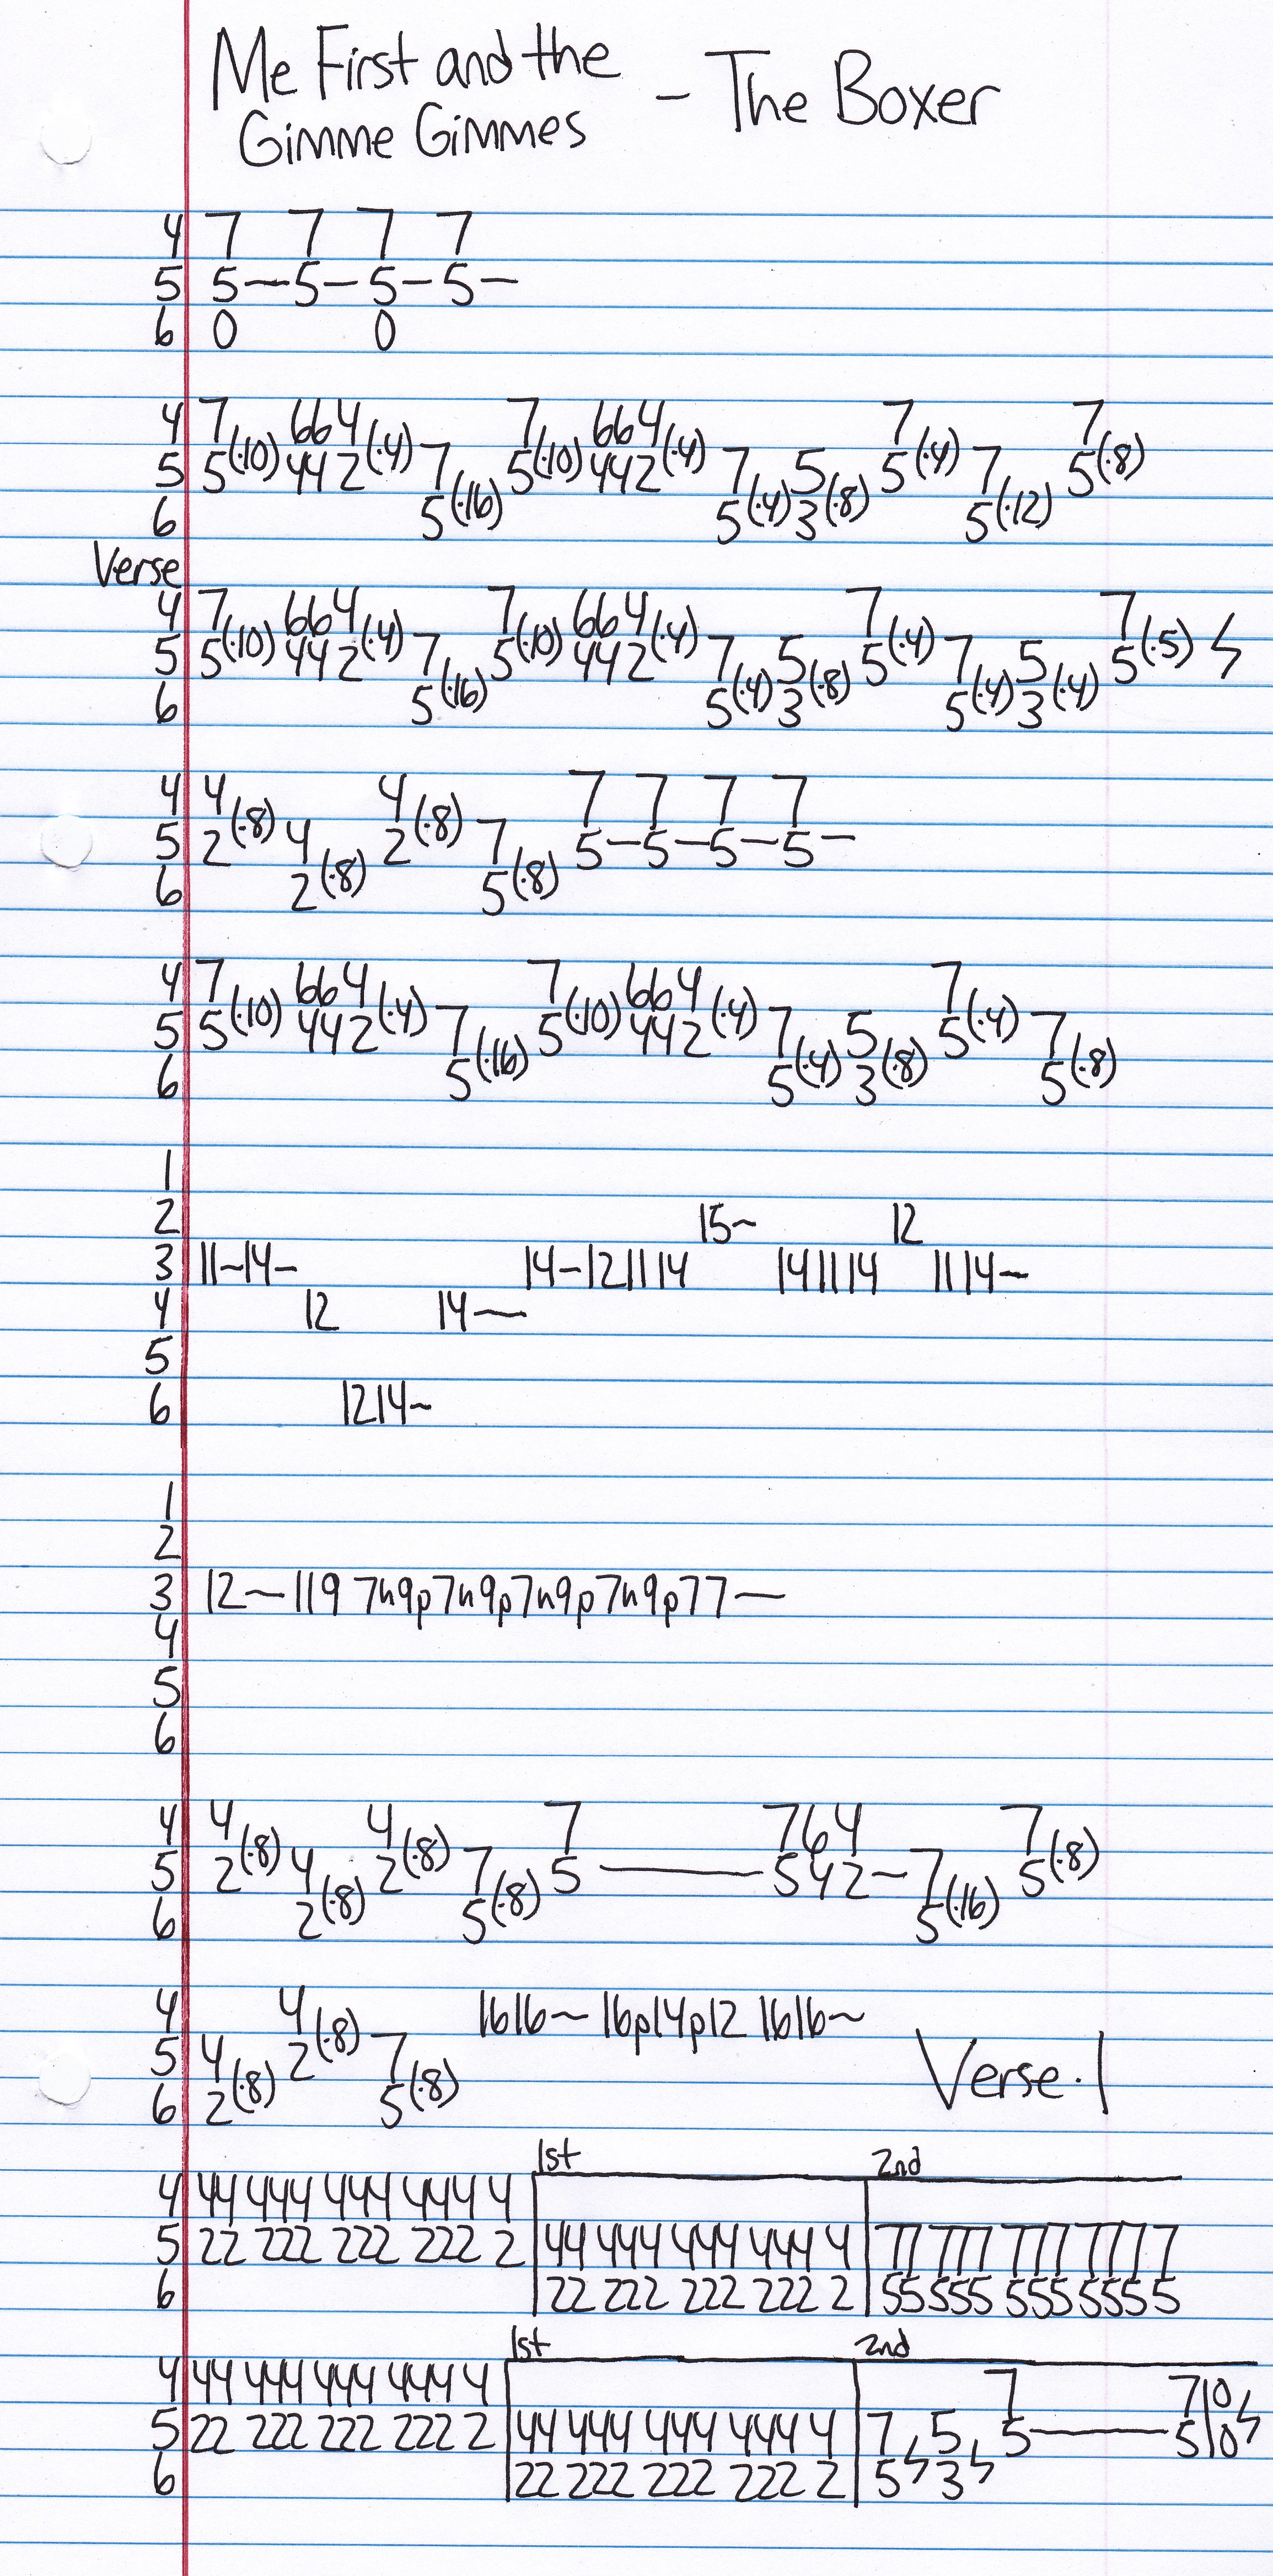 Me First and the
Gimme Gimmes - The Boxer
4 7 7 7 7
5 5-5-5-5-
6 0 0
4 7 664 7 664 7 7
5 5(·10) 442(·4) 7 5(·10) 442(·4) 7 5 5(·4) 7 5(·8)
6 5(·16) 5(·4) 3(·8) 5(·12)
Verse
4 7 664 7 664 7 7
5 5(·10) 442(·4) 7 5(·10) 442(·4) 7 5 5(·4) 7 5 5(·5)
6 5(·16) 5(·4) 3(·8) 5(·4) 3(·4)
4 4 4 7 7 7 7
5 2(·8) 4 2(·8) 7 5-5-5-5-
6 2(·8) 5(·8)
4 7 664 7 664 7
5 5(·10) 442(·4) 7 5(·10) 442(·4) 7 5 5(·4) 7
6 5(·16) 5(·4) 3(·8) 5(·8)
1
2 15~ 12
3 11~14- 14-121114 141114 1114~
4 12 14~
5
6 1214~
1
2
3 12~119 7h9p7h9p7h9p7h9p77~
4
5
6
4 4 4 7 764 7
5 2(·8) 4 2(·8) 7 5 — 542- 7 5(·8)
6 2(·8) 5(·8) 5(·16)
4 4 1616~ 16p14p12 1616~
5 4 2(·8) 7
6 2(·8) 5(·8)
Verse·1
1st 2nd
4 44 444 444 444 4
5 22 222 222 222 2 44 444 444 444 4 77 777 777 777 7
6 22 222 222 222 2 55 555 555 555 5
1st 2nd
4 44 444 444 444 4 7 7 10
5 22 222 222 222 2 44 444 444 444 4 7 5 5 — 5 10
6 22 222 222 222 2 5 3